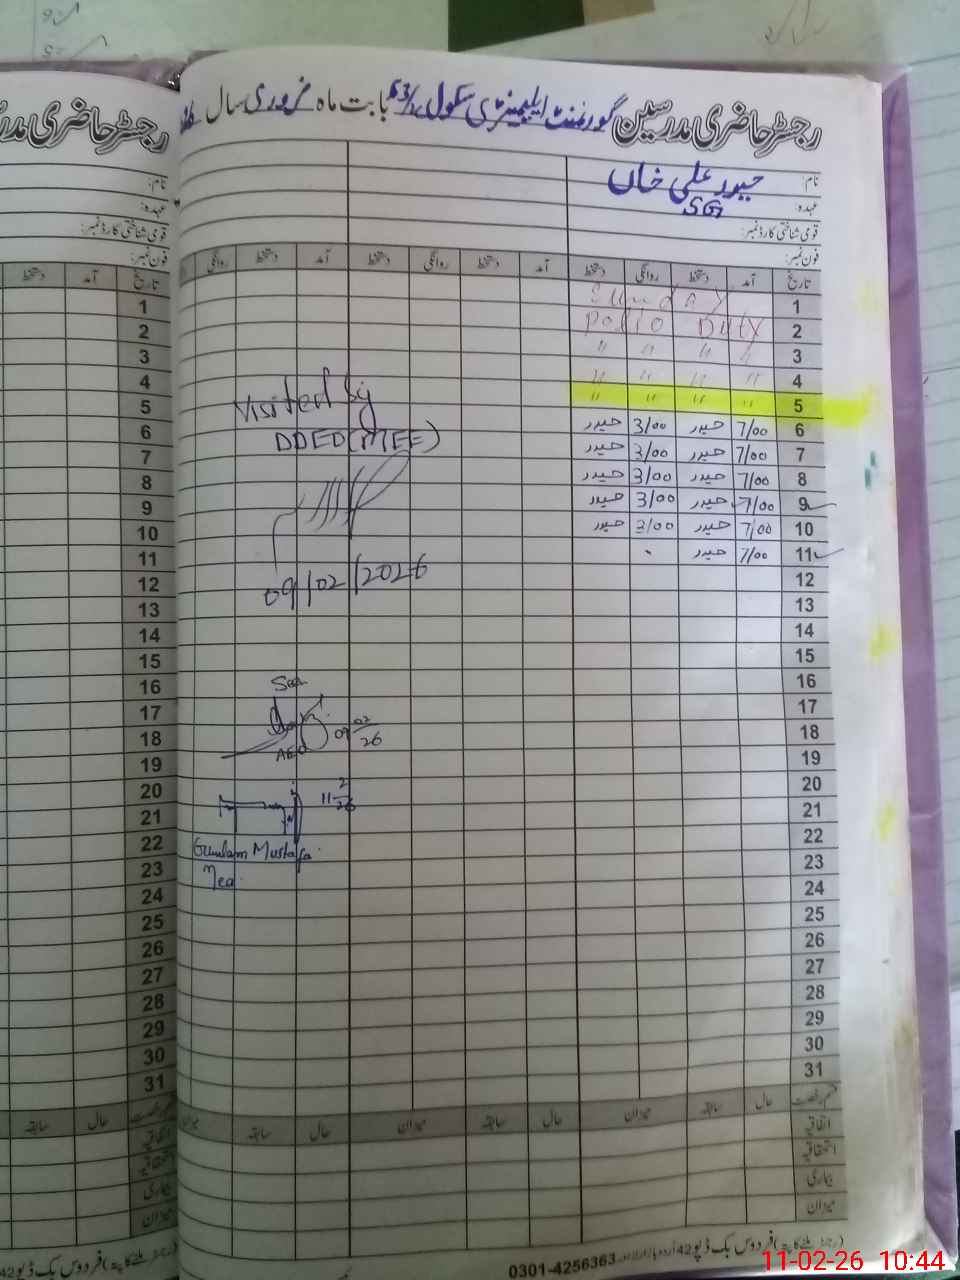 رجسٹر حاضری مدرسین گورنمنٹ ایلیمنٹری سکول بابت ماہ فروری سال
نام: حیدر علی خاں
عہدہ: SG
قومی شناختی کارڈ نمبر:
فون نمبر:
تاریخ آمد دستخط روانگی دستخط آمد دستخط روانگی دستخط آمد دستخط روانگی
1 Sunday
2 Polio Duty
3 " " " "
4 " " " "
5 " " " "
6 7/00 حیدر 3/00 حیدر
7 7/00 حیدر 3/00 حیدر
8 7/00 حیدر 3/00 حیدر
9 7/00 حیدر 3/00 حیدر
10 7/00 حیدر 3/00 حیدر
11 7/00 حیدر
12
13
14
15
16
17
18
19
20
21
22
23
24
25
26
27
28
29
30
31
Visited by
DDEO (MEE)
09/02/2026
See
AEO 09 02 26
11 2 26
Ghulam Mustafa
Mea
قسم رخصت حال سابقہ میزان حال سابقہ میزان حال سابقہ
اتفاقیہ
استحقاقیہ
بیماری
میزان
(رجسٹر ملنے کا پتہ) فردوس بک ڈپو 42 اردو بازار لاہور 0301-4256363
رجسٹر حاضری
نام:
عہدہ:
قومی شناختی کارڈ نمبر:
فون نمبر:
تاریخ آمد دستخط
1
2
3
4
5
6
7
8
9
10
11
12
13
14
15
16
17
18
19
20
21
22
23
24
25
26
27
28
29
30
31
حال سابقہ
اتفاقیہ
استحقاقیہ
بیماری
میزان
فردوس بک ڈپو 42
11-02-26 10:44